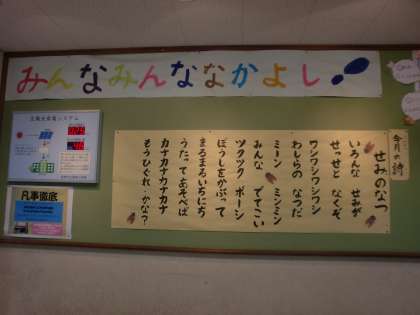 みんなみんななかよし!
今月の詩
せみのなつ
いろんな せみが
せっせと なくぞ
ワシワシワシワシ
わしらの なつだ
ミーン ミンミン
みんな でてこい
ツクツク ボーシ
ぼうしをかぶって
まるまるいちにち
うたってあそべば
カナカナカナカナ
もうひぐれ・かな?
太陽光発電システム
凡事徹底